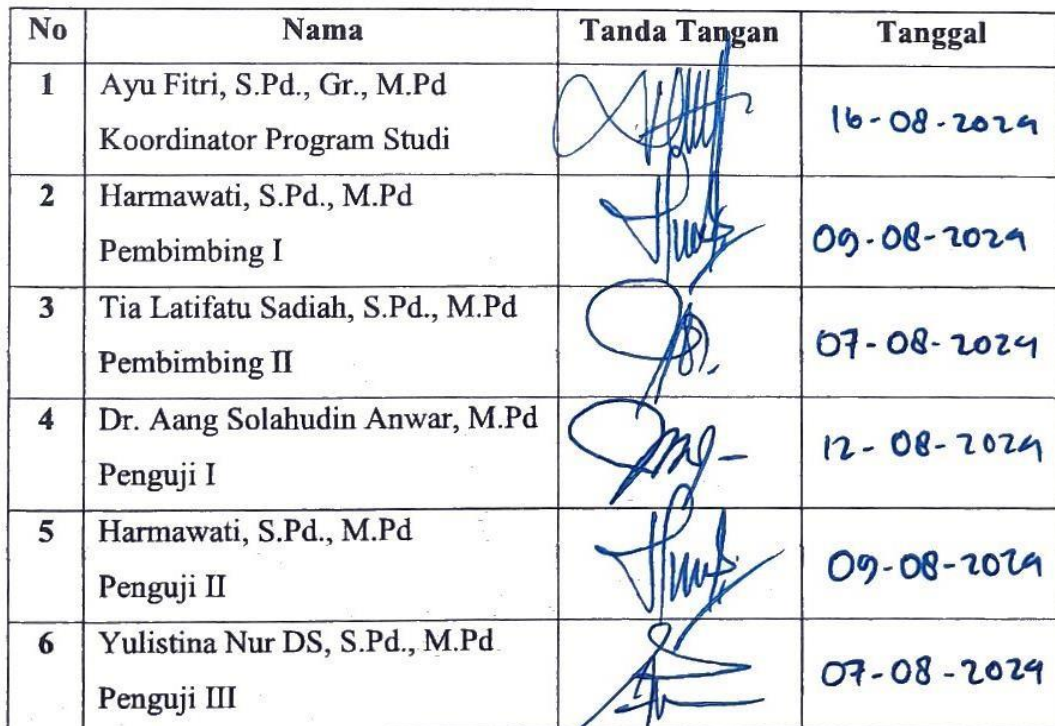 No Nama Tanda Tangan Tanggal
1 Ayu Fitri, S.Pd., Gr., M.Pd
Koordinator Program Studi
16-08-2024
2 Harmawati, S.Pd., M.Pd
Pembimbing I
09-08-2024
3 Tia Latifatu Sadiah, S.Pd., M.Pd
Pembimbing II
07-08-2024
4 Dr. Aang Solahudin Anwar, M.Pd
Penguji I
12-08-2024
5 Harmawati, S.Pd., M.Pd
Penguji II
09-08-2024
6 Yulistina Nur DS, S.Pd., M.Pd
Penguji III
07-08-2024